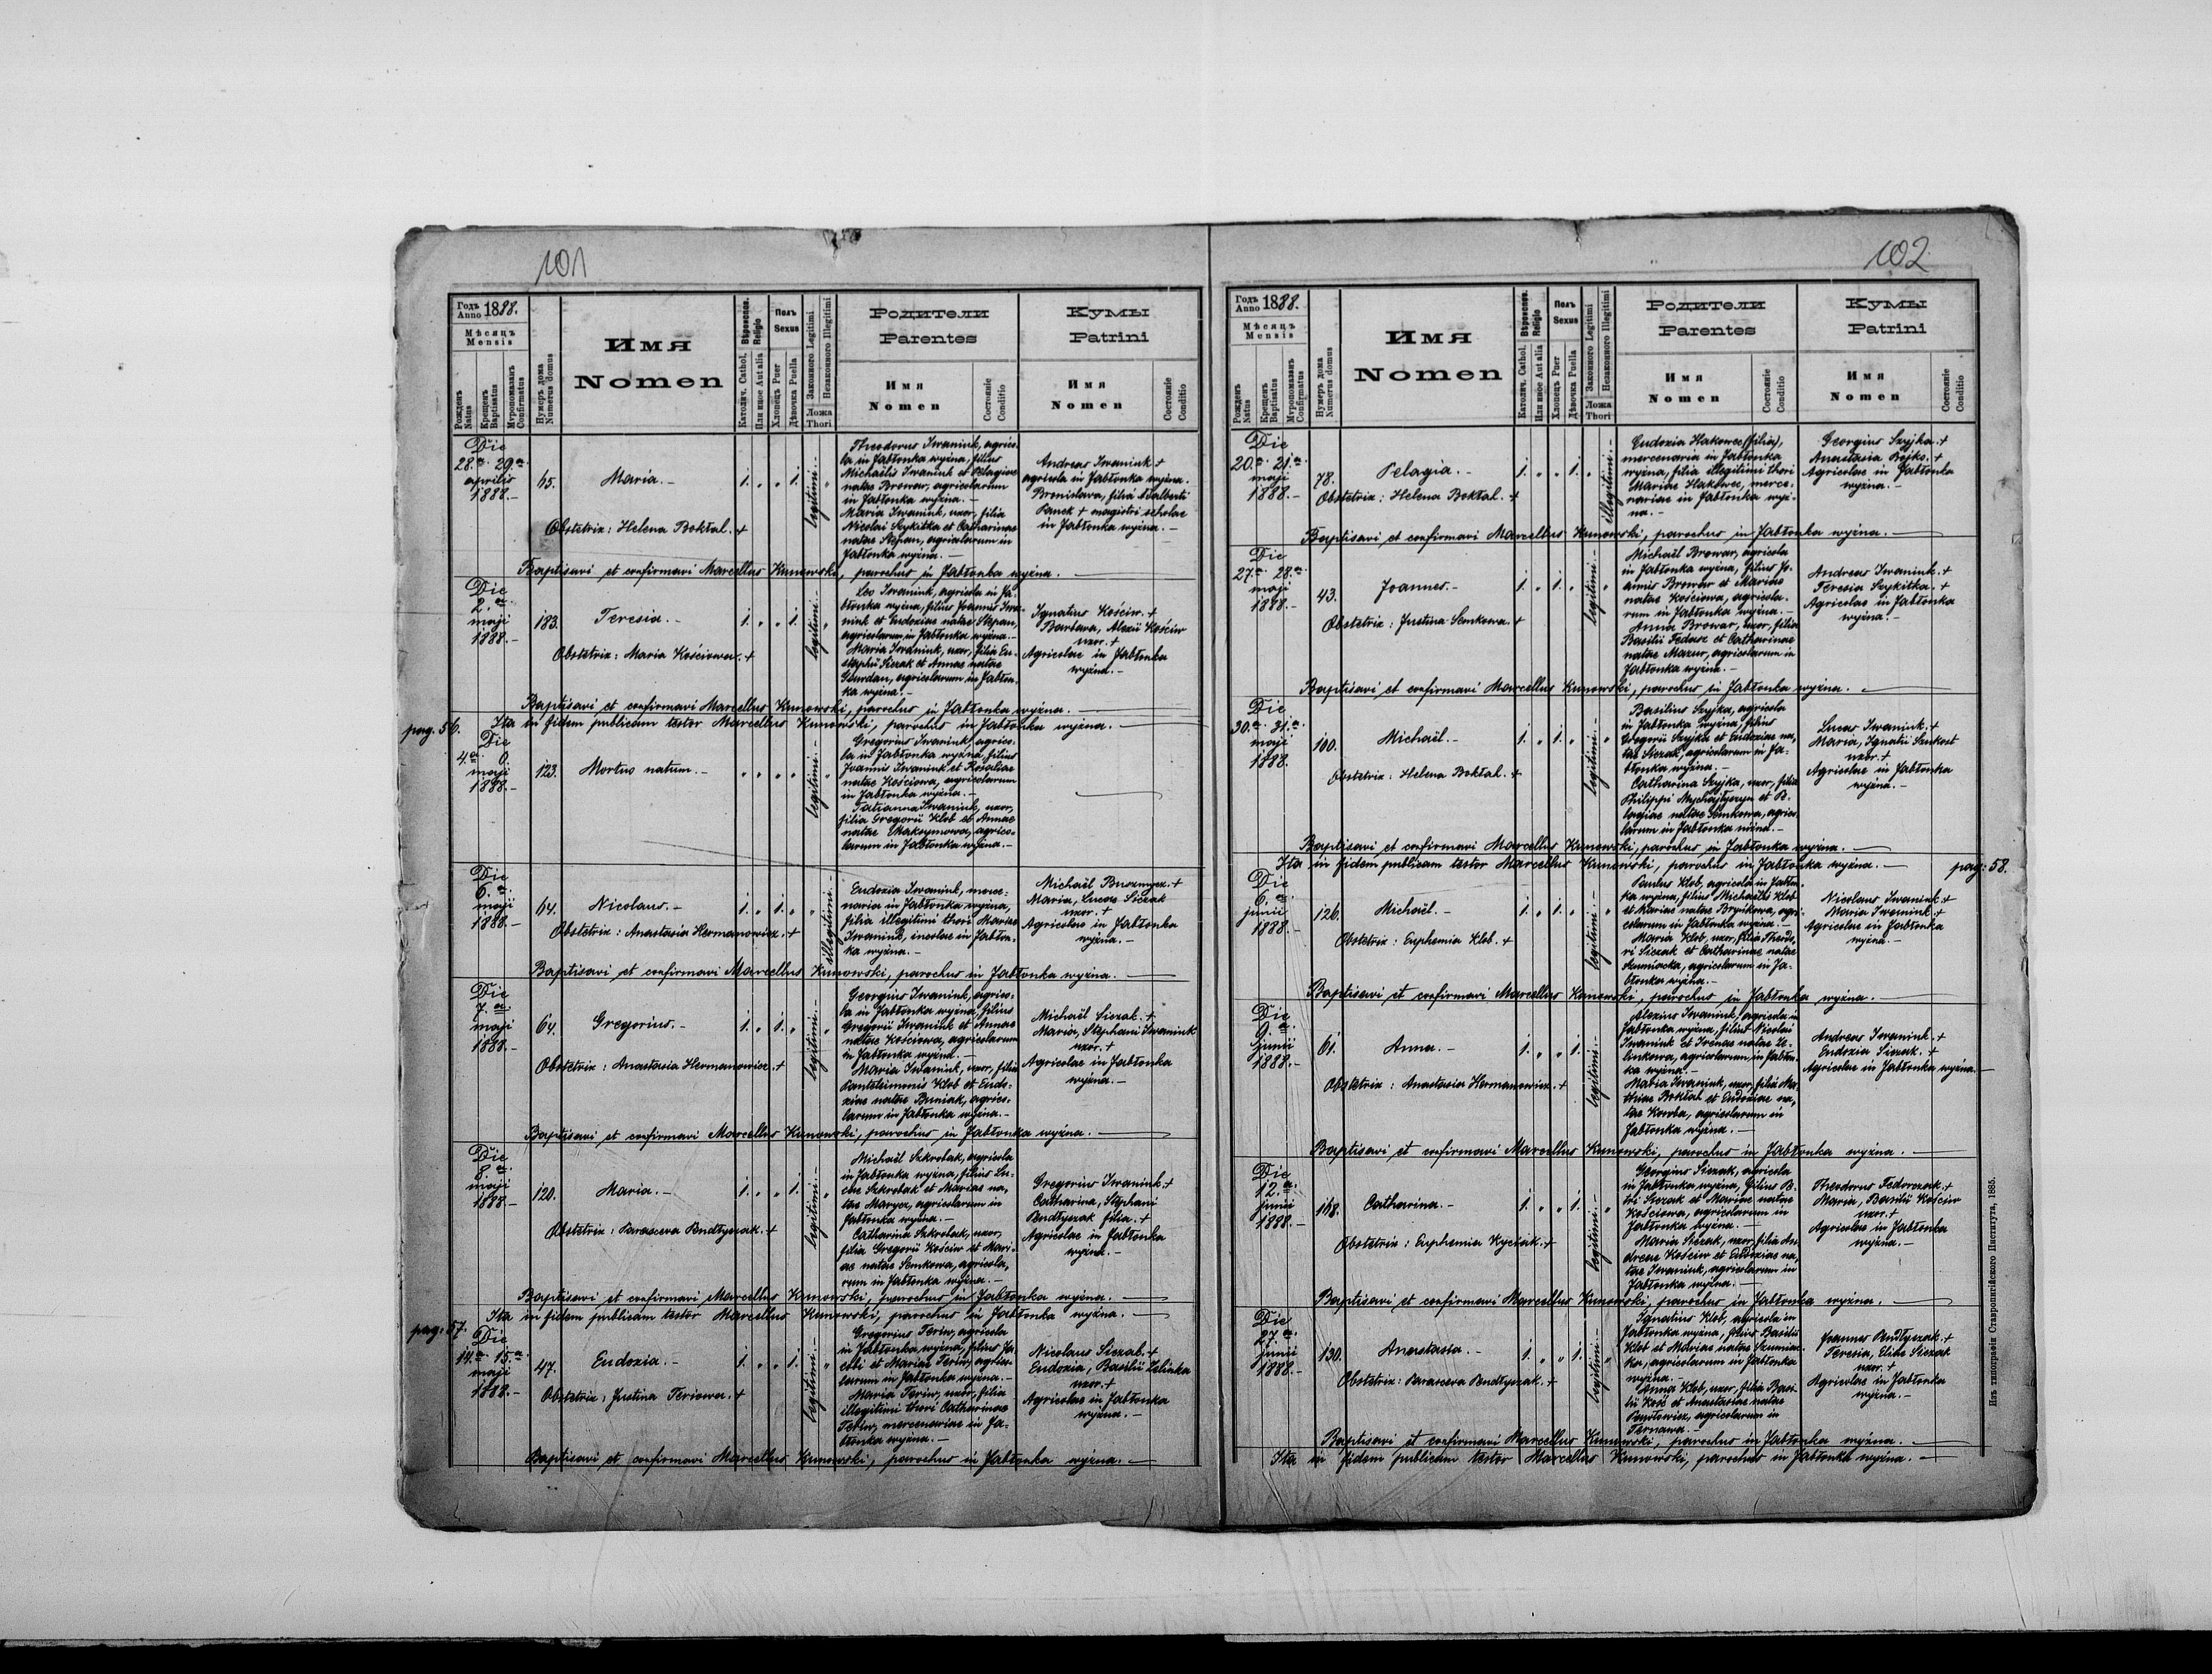 101
Годъ Anno 1888.
Мѣсяцъ
Mensis
Рожденъ Natus
Крещенъ Baptisatus
Муропомазанъ Confirmatus
Нумеръ дома Numerus domus
Имя
Nomen
Вѣроиспов. Religio
Католич. Cathol.
Или иное Aut alia
Полъ
Sexus
Хлопецъ Puer
Дѣвочка Puella
Законного Legitimi
Незаконного Illegitimi
Ложа
Thori
Родители
Parentes
Имя
Nomen
Состояніе
Conditio
Кумы
Patrini
Имя
Nomen
Состояніе
Conditio
Die
28.a 29.a
aprilis
1888.–
65.
Maria.–
1. „ „ 1.
legitimi.–
Theodorus Iwaniuk, agrico=
la in Jabłonka wyżna, filius
Michaëlis Iwaniuk et Pelagiae
natae Browar, agricolarum
in Jabłonka wyżna.–
Maria Iwaniuk, uxor, filia
Nicolai Szykitka et Catharinae
natae Stepan, agricolarum in
Jabłonka wyżna.–
Andreas Iwaniuk +
agricola in Jabłonka wyżna.
Bronislava, filia Adalberti
Panek + magistri scholae
in Jabłonka wyżna.–
Obstetrix: Helena Boktal. +
Baptisavi et confirmavi Marcellus Kunowski, parochus in Jabłonka wyżna.
Die
2.a
maji
1888.–
183.
Teresia.–
1. „ „ 1.
legitimi.–
Leo Iwaniuk, agricola in Ja=
błonka wyżna, filius Joannis Iwa=
niuk et Eudoxiae natae Stepan,
agricolarum in Jabłonka wyżna.–
Maria Iwaniuk, uxor, filia Eu=
staphii Siczak et Annae natae
agricolarum in Jabłon=
ka wyżna.–
Ignatius Kościw. +
Barbara, Alexii Kościw
uxor. +
Agricolae in Jabłonka
wyżna.–
Obstetrix: Maria Kościowa. +
Baptisavi et confirmavi Marcellus Kunowski, parochus in Jabłonka wyżna.
pag. 56. Ita in fidem publicam testor Marcellus Kunowski, parochus in Jabłonka wyżna.
Die
4.a 0.
maji
1888.–
123.
Mortus natum.–
„ „ „ „
legitimi.–
Gregorius Iwaniuk, agrico=
la in Jabłonka wyżna, filius
Joannis Iwaniuk et Rosaliae
natae Kościowa, agricolarum
in Jabłonka wyżna.–
Tatianna Iwaniuk, uxor,
filia Gregorii Klob et Annae
natae Maksymowa, agrico=
larum in Jabłonka wyżna.–
Die
6.a
maji
1888.–
64.
Nicolaus.–
1. „ 1. „
illegitimi.–
Eudoxia Iwaniuk, merce=
naria in Jabłonka wyżna,
filia illegitimi thori Mariae
Iwaniuk, incolae in Jabłon=
ka wyżna.–
Michaël +
Maria, Lucae Siczak
uxor. +
Agricolae in Jabłonka
wyżna.–
Obstetrix: Anastasia Hermanowicz. +
Baptisavi et confirmavi Marcellus Kunowski, parochus in Jabłonka wyżna.
Die
7.a
maji
1888.–
64.
Gregorius.–
1. „ 1. „
legitimi.–
Georgius Iwaniuk, agrico=
la in Jabłonka wyżna, filius
Gregorii Iwaniuk et Annae
natae Kościowa, agricolarum
in Jabłonka wyżna.–
Maria Iwaniuk, uxor, filia
Panteleimonis Klob et Eudo=
xiae natae Buniak, agrico=
larum in Jabłonka wyżna.–
Michaël Siczak. +
Maria, Stephani Iwaniuk
uxor. +
Agricolae in Jabłonka
wyżna.–
Obstetrix: Anastasia Hermanowicz. +
Baptisavi et confirmavi Marcellus Kunowski, parochus in Jabłonka wyżna.
Die
8.a
maji
1888.–
120.
Maria.–
1. „ „ 1.
legitimi.–
Michaël Szkrobak, agricola
in Jabłonka wyżna, filius Lu=
cae Szkrobak et Mariae na=
tae agricolarum in
Jabłonka wyżna.–
Catharina Szkrobak, uxor,
filia Gregorii Kościw et Mari=
ae natae Semkowa, agricola=
rum in Jabłonka wyżna.–
Gregorius Iwaniuk. +
Catharina, Stephani
Pendłyszak filia. +
Agricolae in Jabłonka
wyżna.–
Obstetrix: Parasceva Pendłyszak. +
Baptisavi et confirmavi Marcellus Kunowski, parochus in Jabłonka wyżna.
Ita in fidem publicam testor Marcellus Kunowski, parochus in Jabłonka wyżna.
pag. 57.
Die
14.a 15.a
maji
1888.–
47.
Eudoxia.–
1. „ „ 1.
legitimi.–
Gregorius Feriw, agricola
in Jabłonka wyżna, filius Ja=
cobi et Mariae Feriw, agrico=
larum in Jabłonka wyżna.–
Maria Feriw, uxor, filia
illegitimi thori Catharinae
Feriw, mercenariae in Ja=
błonka wyżna.–
Nicolaus Siczak. +
Eudoxia, Basilii Zelinka
uxor. +
Agricolae in Jabłonka
wyżna.–
Obstetrix: Justina Feriowa. +
Baptisavi et confirmavi Marcellus Kunowski, parochus in Jabłonka wyżna.
102
Годъ Anno 1888.
Мѣсяцъ
Mensis
Рожденъ Natus
Крещенъ Baptisatus
Муропомазанъ Confirmatus
Нумеръ дома Numerus domus
Имя
Nomen
Вѣроиспов. Religio
Католич. Cathol.
Или иное Aut alia
Полъ
Sexus
Хлопецъ Puer
Дѣвочка Puella
Законного Legitimi
Незаконного Illegitimi
Ложа
Thori
Родители
Parentes
Имя
Nomen
Состояніе
Conditio
Кумы
Patrini
Имя
Nomen
Состояніе
Conditio
Die
20.a 21.a
maji
1888.–
78.
Pelagia.–
1. „ „ 1.
illegitimi.–
Eudoxia Hakowec (filia),
mercenaria in Jabłonka
wyżna, filia illegitimi thori
Mariae Hakowec, merce=
nariae in Jabłonka wyż=
na.–
Georgius Szyjka. +
Anastasia Bojko. +
Agricolae in Jabłonka
wyżna.–
Obstetrix: Helena Boktal. +
Baptisavi et confirmavi Marcellus Kunowski, parochus in Jabłonka wyżna.
Die
27.a 28.a
maji
1888.–
43.
Joannes.–
1. „ 1. „
legitimi.–
Michaël Browar, agricola
in Jabłonka wyżna, filius Jo=
annis Browar et Mariae
natae Kościowa, agricola=
rum in Jabłonka wyżna.–
Anna Browar, uxor, filia
Basilii Fedasz et Catharinae
natae Mazur, agricolarum in
Jabłonka wyżna.–
Andreas Iwaniuk. +
Teresia Szykitka. +
Agricolae in Jabłonka
wyżna.–
Obstetrix: Justina Semkowa. +
Baptisavi et confirmavi Marcellus Kunowski, parochus in Jabłonka wyżna.
Die
30.a 31.a
maji
1888.
100.
Michaël.–
1. „ 1. „
legitimi.–
Basilius Szyjka, agricola
in Jabłonka wyżna, filius
Gregorii Szyjka et Eudoxiae na=
tae Siczak, agricolarum in Ja=
błonka wyżna.–
Catharina Szyjka, uxor, filia
Philippi Mychajłyszyn et Pe=
lagiae natae Semkowa, agrico=
larum in Jabłonka niżna.–
Lucas Iwaniuk. +
Maria, Ignatii
uxor. +
Agricolae in Jabłonka
wyżna.–
Obstetrix: Helena Boktal. +
Baptisavi et confirmavi Marcellus Kunowski, parochus in Jabłonka wyżna.
Ita in fidem publicam testor Marcellus Kunowski, parochus in Jabłonka wyżna.– pag: 58.
Die
6.a
junii
1888.–
126.
Michaël.–
1. „ 1. „
legitimi.–
Paulus Klob, agricola in Jabłon=
ka wyżna, filius Michaëlis Klob
et Mariae natae Brynkowa, agri=
colarum in Jabłonka wyżna.–
Maria Klob, uxor, filia Theodo=
ri Siczak et Catharinae natae
Szumiacka, agricolarum in Ja=
błonka wyżna.–
Nicolaus Iwaniuk. +
Maria Iwaniuk. +
Agricolae in Jabłonka
wyżna.–
Obstetrix: Euphemia Klob. +
Baptisavi et confirmavi Marcellus Kunowski, parochus in Jabłonka wyżna.
Die
9.a
junii
1888.–
61.
Anna.–
1. „ „ 1.
legitimi.–
Alexius Iwaniuk, agricola in
Jabłonka wyżna, filius Nicolai
Iwaniuk et Irenae natae Ze=
linkowa, agricolarum in Jabłon=
ka wyżna.–
Maria Iwaniuk, uxor, filia Ma=
thiae Boktal et Eudoxiae na=
tae Korwba, agricolarum in
Jabłonka wyżna.–
Andreas Iwaniuk. +
Eudoxia Siczak. +
Agricolae in Jabłonka wyżna.–
Obstetrix: Anastasia Hermanowicz. +
Baptisavi et confirmavi Marcellus Kunowski, parochus in Jabłonka wyżna.
Die
12.a
junii
1888.–
168.
Catharina.–
1. „ „ 1.
legitimi.–
Georgius Siczak, agricola
in Jabłonka wyżna, filius Pe=
tri Siczak et Mariae natae
Kościowa, agricolarum in
Jabłonka wyżna.–
Maria Siczak, uxor, filia An=
dreae Kościw et Eudoxiae na=
tae Iwaniuk, agricolarum in
Jabłonka wyżna.–
Theodorus Fedorczak. +
Maria, Basilii Kościw
uxor. +
Agricolae in Jabłonka
wyżna.–
Obstetrix: Euphemia Kyczak. +
Baptisavi et confirmavi Marcellus Kunowski, parochus in Jabłonka wyżna.
Die
27.a
junii
1888.–
130.
Anastasia.–
1. „ „ 1.
legitimi.–
Ignatius Klob, agricola in
Jabłonka wyżna, filius Basilii
Klob et Mariae natae Szumiac=
ka, agricolarum in Jabłonka
wyżna.–
Anna Klob, uxor, filia Basi=
lii Koś et Anastasiae natae
Pawłowicz, agricolarum in
Ternawa.–
Joannes Pendłyszak. +
Teresia, Eliae Siczak
uxor. +
Agricolae in Jabłonka
wyżna.–
Obstetrix: Parasceva Pendłyszak. +
Baptisavi et confirmavi Marcellus Kunowski, parochus in Jabłonka wyżna.
Ita in fidem publicam testor Marcellus Kunowski, parochus in Jabłonka wyżna.
Изъ типографіи Ставропигійского Института, 1885.